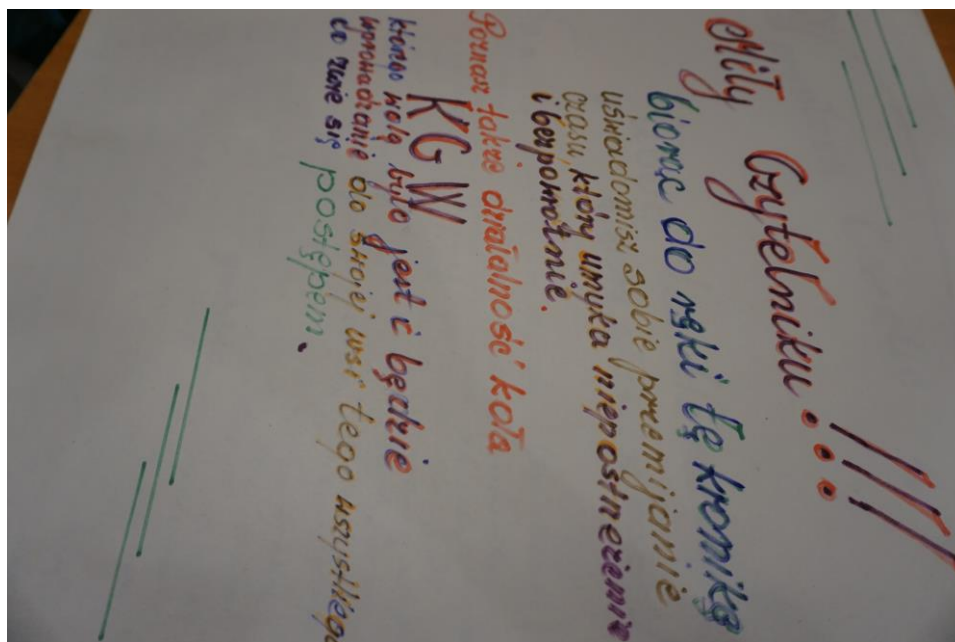 Miły
Czytelniku!!!
biorąc do ręki tę kronikę
uświadomisz sobie przemijanie
czasu, który umyka niepostrzeżenie
i bezpowrotnie.
Poznasz także działalność koła
KGW
którego wolą było jest i będzie
wprowadzanie do swojej wsi tego wszystkiego
co zwie się postępem.